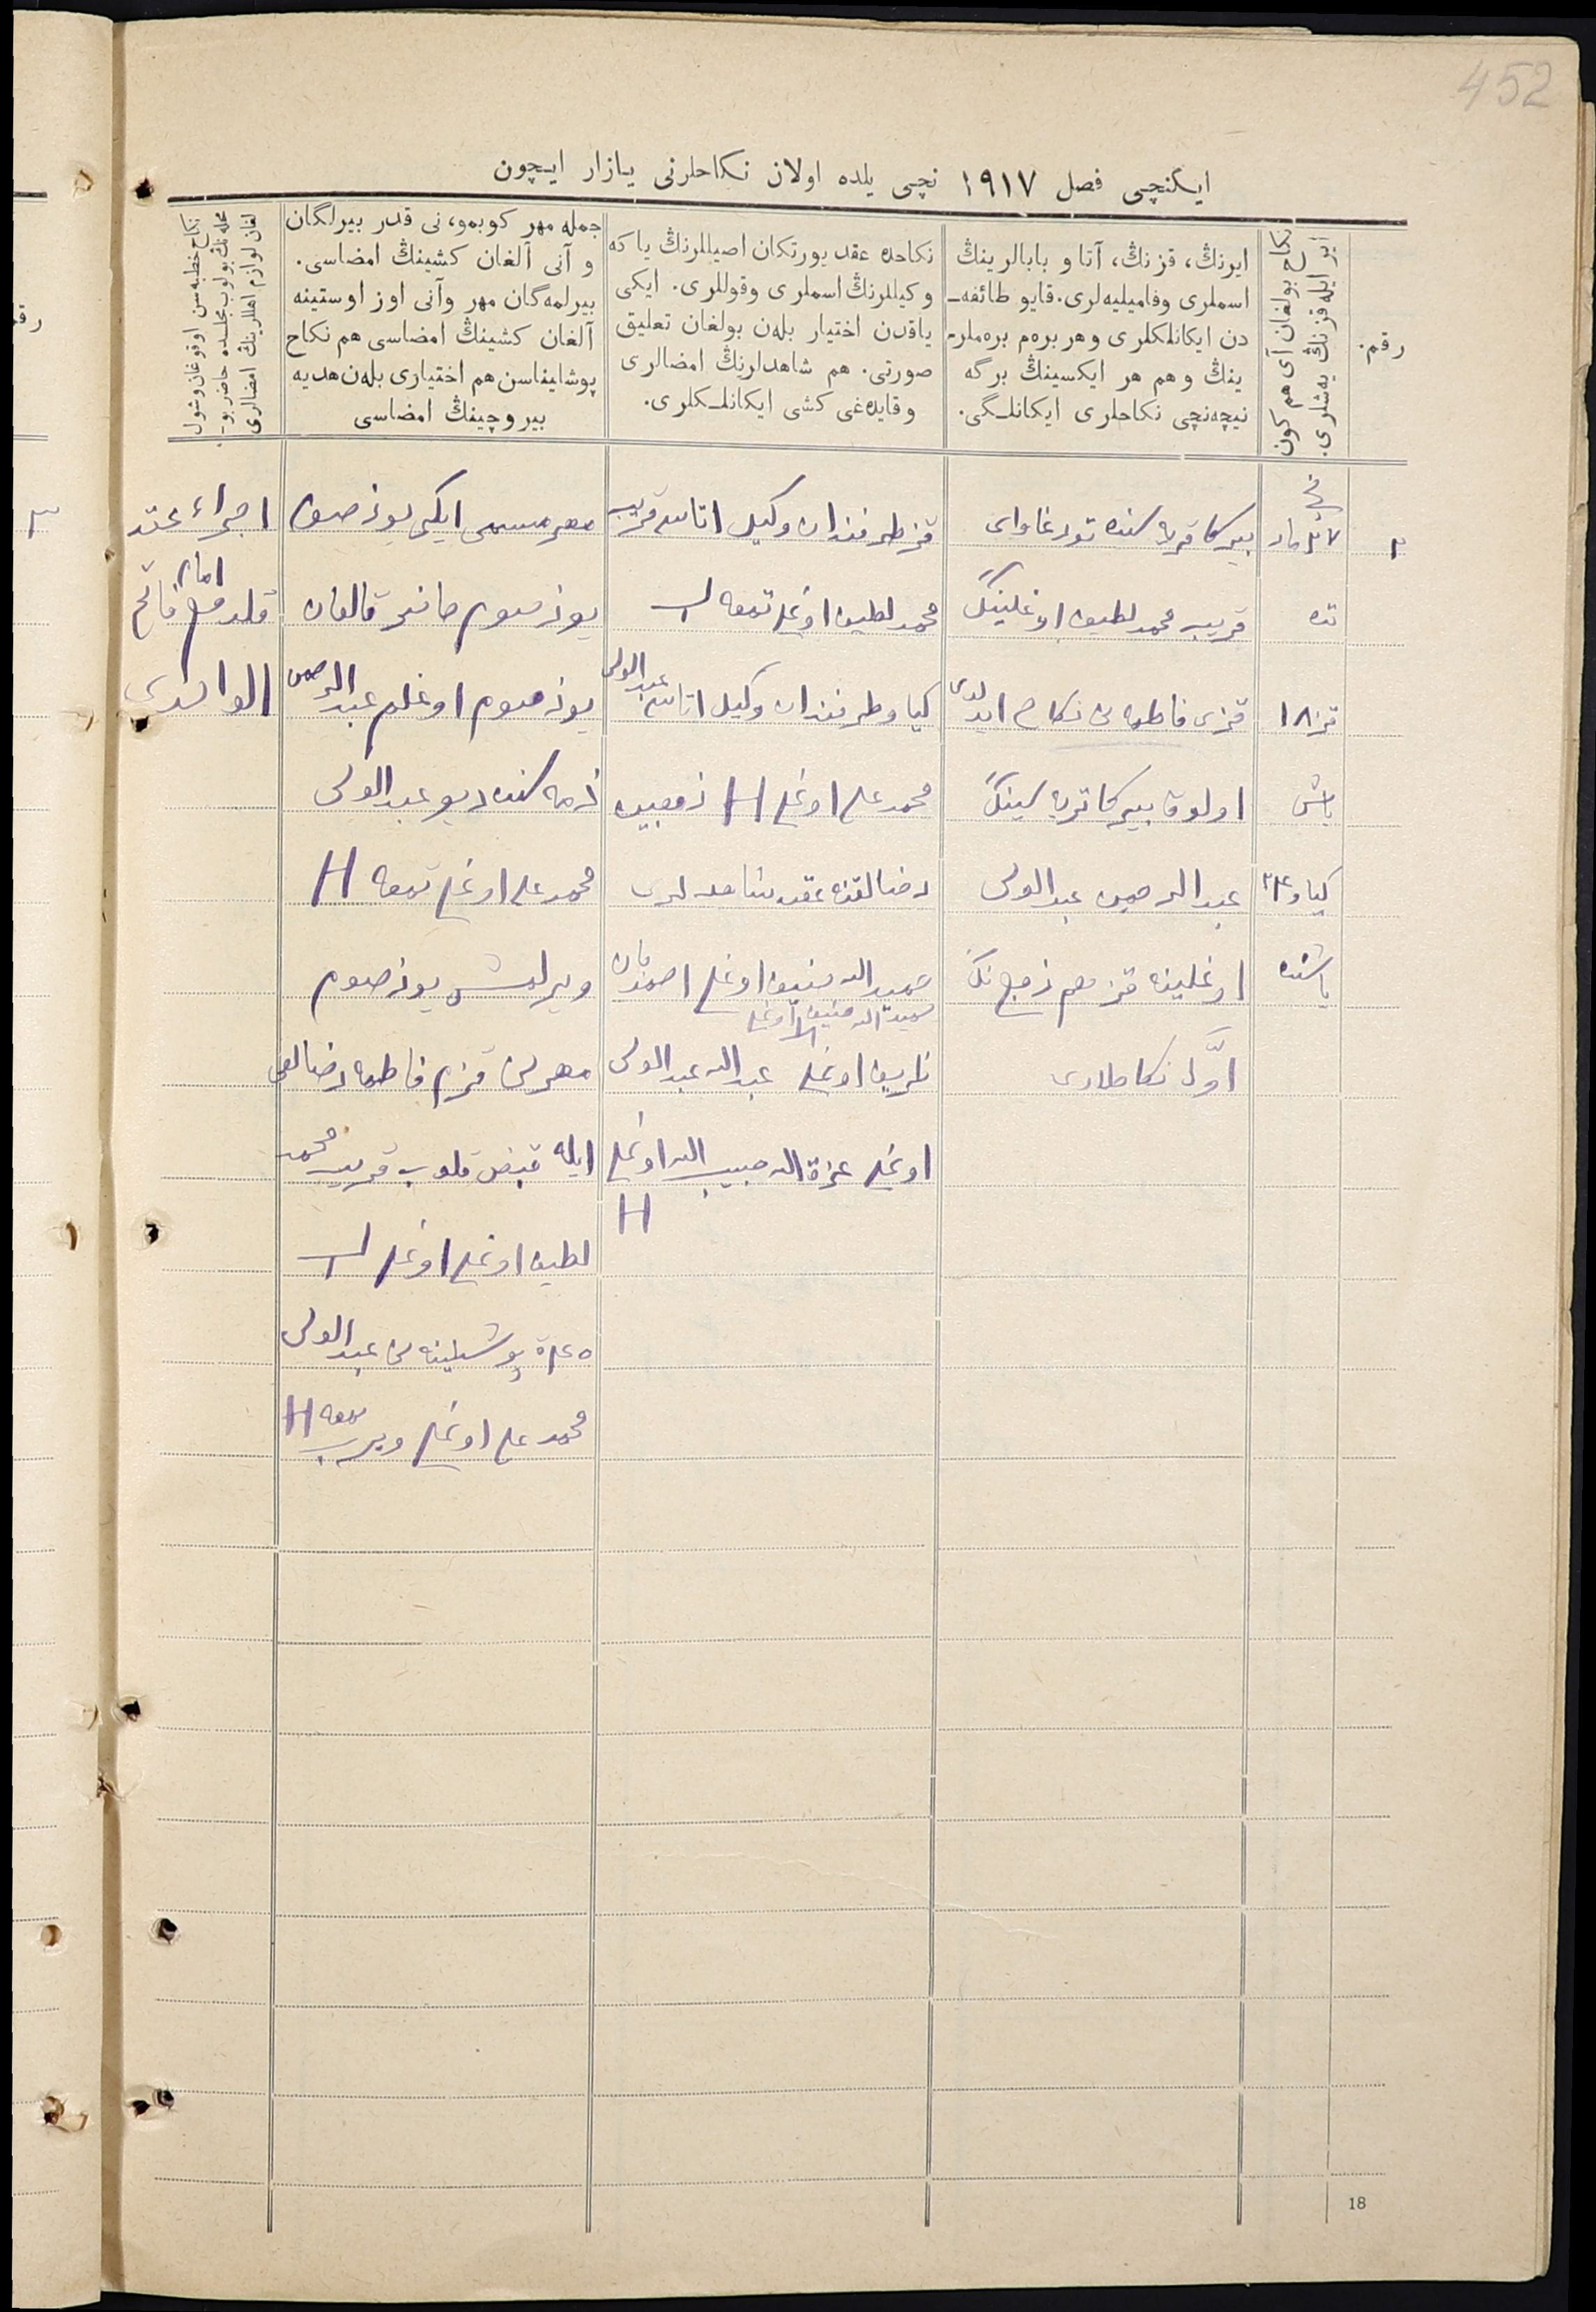 452
ایکنچی فصل ۱۹۱۷ نچی یلده اولان نکاحلرنی یازار ایچون
رقم.
نکاح بولغان آی هم کون
ایر ایله قزنڭ یه‌شلری.
ایرنڭ، قزنڭ، آتا و بابالرینڭ
اسملری وفامیلیه‌لری. قایو طائفه‌ـ
دن ایکانلکلری و هر بره‌م بره‌ملرـ
ینڭ و هم هر ایکسینڭ برگه
نیچه‌نچی نکاحلری ایکانلـگی.
نکاحده عقد یورتکان اصیللرنڭ یا که
وکیللرنڭ اسملری وقوللری. ایکی
یاقدن اختیار بله‌ن بولغان تعلیق
صورتی. هم شاهدلرنڭ امضالری
وقایده‌غی کشی ایکانلـکلری.
جمله مهر کوبمو، نی قدر بیرلگان
و آنی آلغان کشینڭ امضاسی.
بیرلمه‌گان مهر وآنی اوز اوستینه
آلغان کشینڭ امضاسی هم نکاح
پوشلیناسن هم اختیاری بله‌ن هدیه
بیروچینڭ امضاسی
نکاح خطبه‌سن اوقوغان وشول
محله‌نڭ بولوب مجلسده حاضر بوـ
لغان لوازم اهللرینڭ امضالری
۲
۲۷ مار
تده
قز ۱۸
یاش
کیاو ۲۴
یاشنده
بیرکا قریه سنده تورغاوای
قریب محمد لطیف اوغلینڭ
قزی فاطمه نی نکاح ایدلدی
اولوق بیرکا قریه سینڭ
عبد الرحمن عبدالولی
اوغلینه قز هم زوج نڭ
اوّل نکاحلاری
قز طرفندان وکیل اتاسی قریب
محمد لطیف اوغلی تمغه
کیاو طرفندان وکیل اتاسی عبد الولی
محمد علی اوغلی H زوجین
رضالقنه عقد شاهدلری
حمید الله حنیف اوغلی احمدجان
ظریف اوغلی عبدالله عبدالولی
اوغلی عزة الله حبیب الله اوغلی
H
مهر مسمی ایکی یوز صوم
یوز صوم حاضر قالغان
یوز صوم اوغلم عبد الرحمن
ذمه سنده دیو عبدالولی
محمد علی اوغلی تمغه H
ویرلمش یوز صوم
مهر نی قزم فاطمه رضالغی
ایله قبض قلوب قریب محمد
لطیف اوغلی اوغلی
پوشلینه نی عبد الولی
محمد علی اوغلی ویروب تمغه H
اجراء عقد
قلدم امام فاتح
الواحدی
18